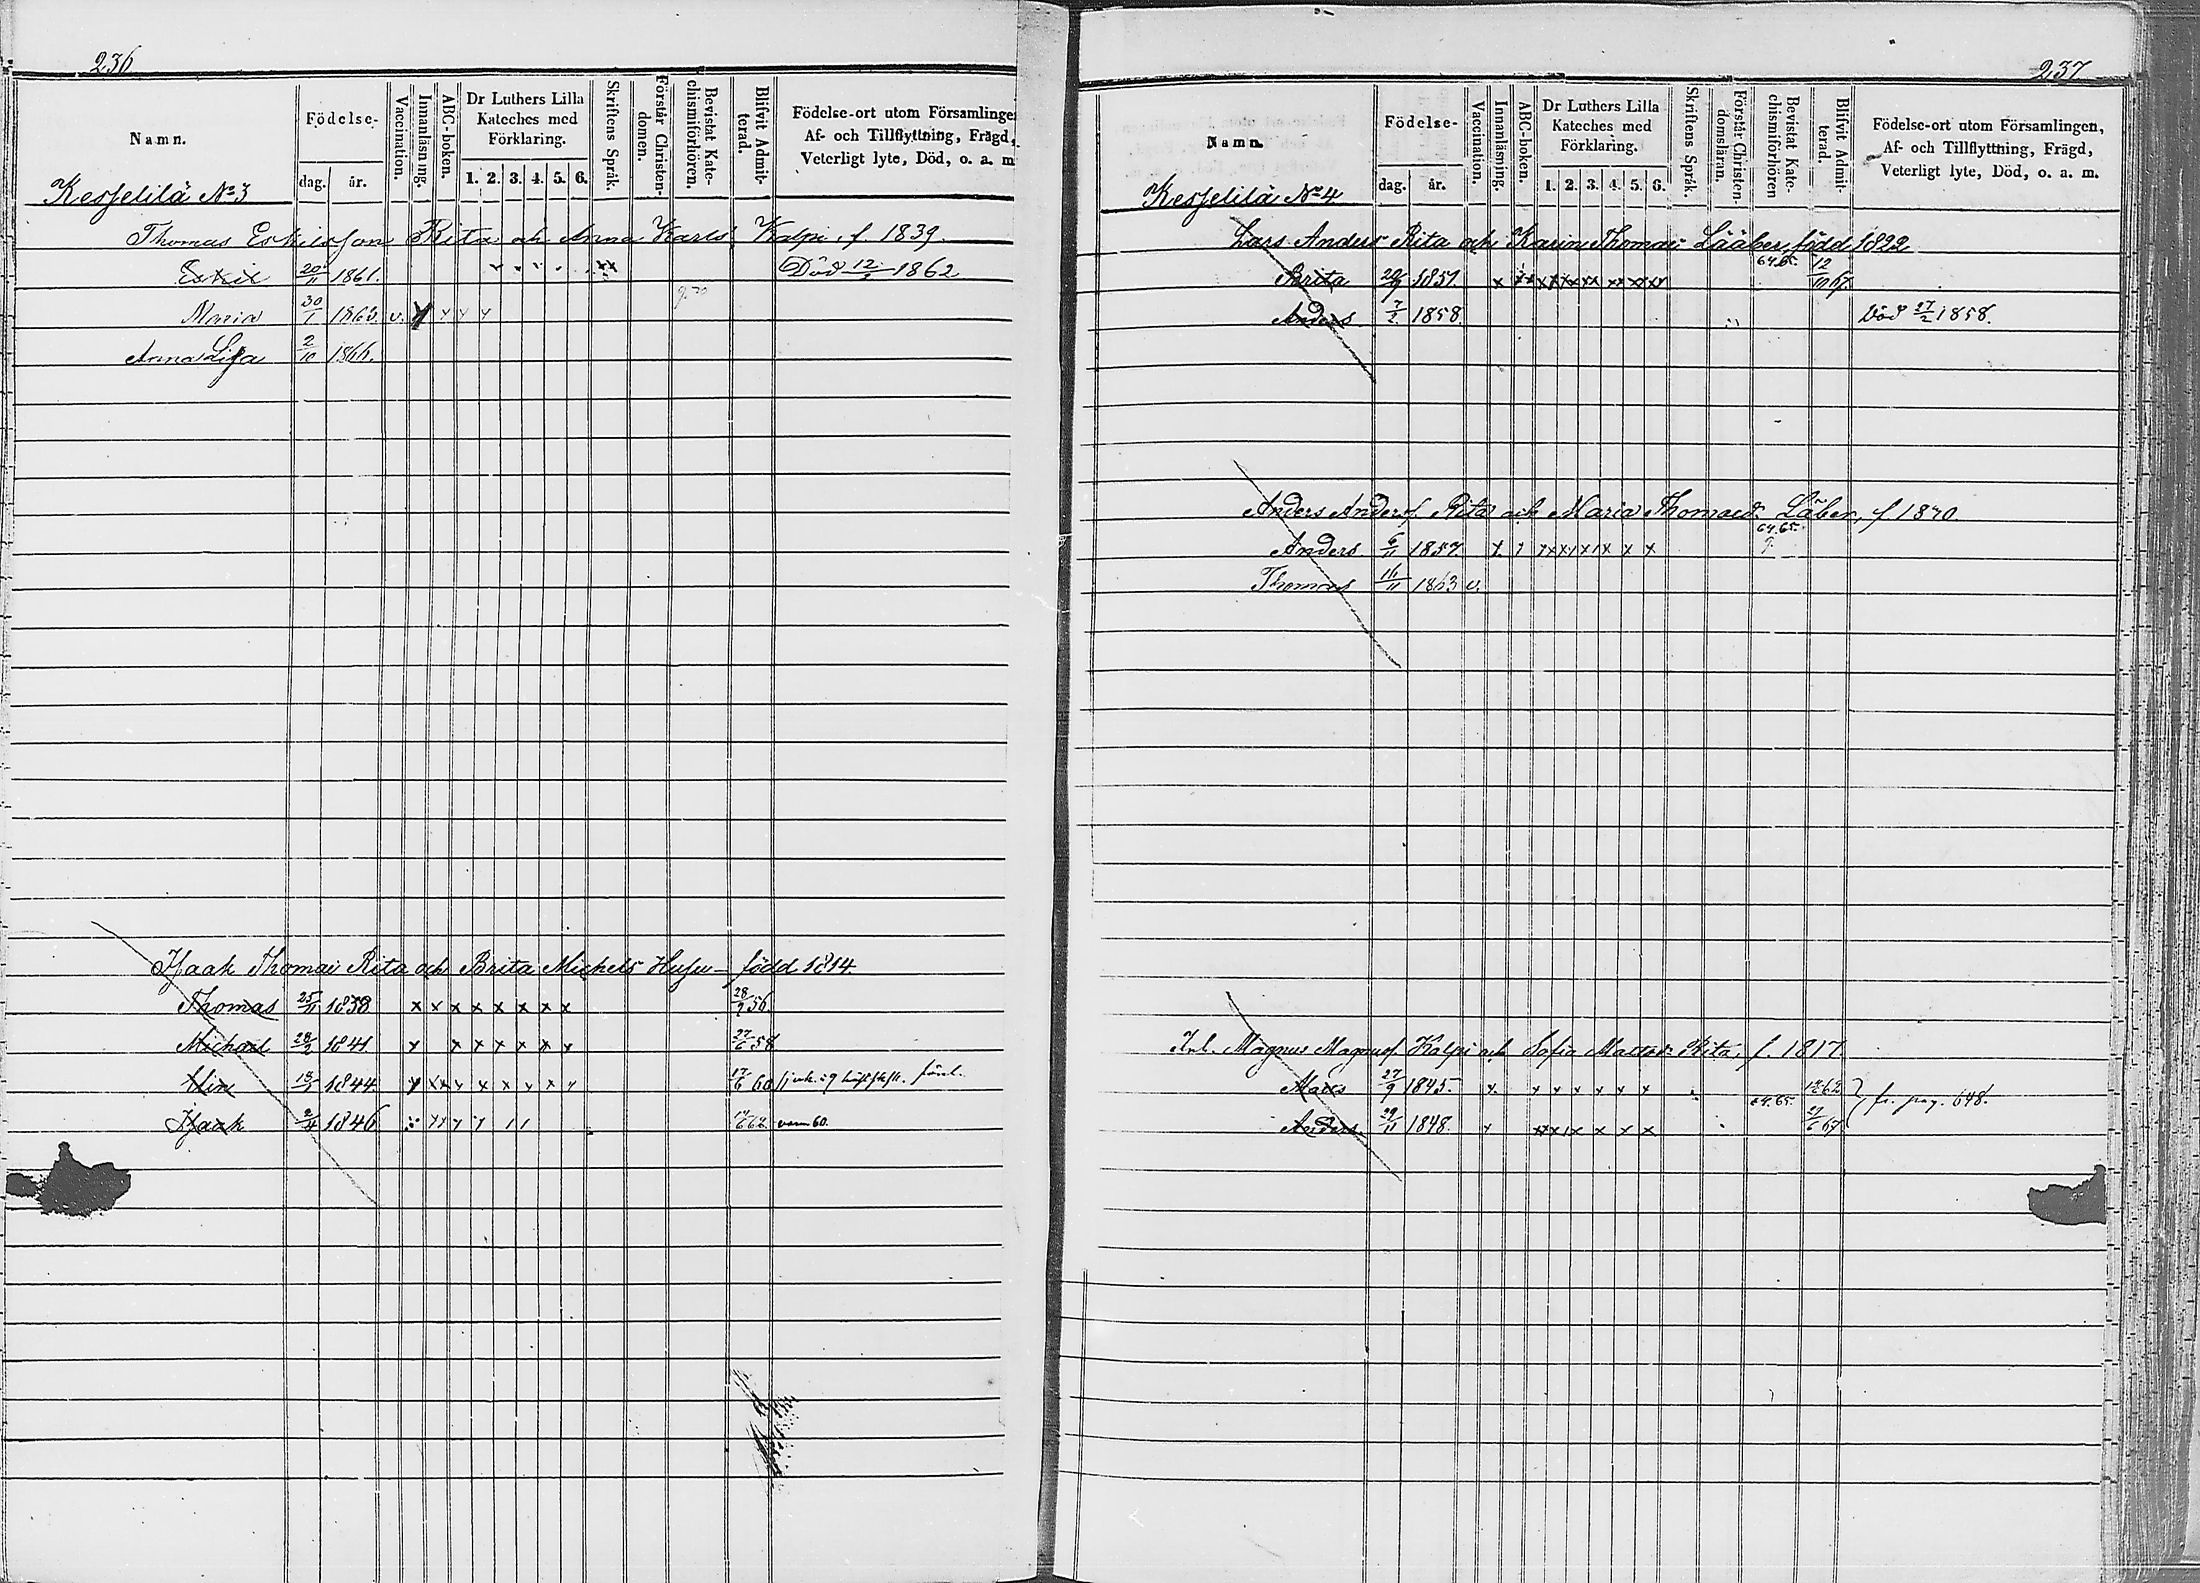 236
Namn.
Födelse-
dag. år.
Vaccination.
Innanläsning.
ABC-boken.
Dr Luthers Lilla
Kateches med
Förklaring.
1. 2. 3. 4. 5. 6.
Skriftens Språk.
Förstår Christen-
domen.
Bevistat Kate-
chismiförhören.
Blifvit Admit-
terad.
Födelse-ort utom Församlingen
Af- och Tillflyttning, Frägd,
Veterligt lyte, Död, o. a. m
Kesselilä No 3
Thomas Eskilsson Rita och Anna Karls Kalpi, f. 1839.
Eskil 20/11 1861. Död 12/2 1862
Maria 30/1 1863. v. x y y y
Anna Lisa 2/10 1866.
Isaak Thomas Rita och Brita Michels Husu född 1814
Thomas 25/11 1838 x x x x x x x x 28/9 56
Michael 28/2 1841 y x x x x x y 27/6 58
Elin 13/ 1844 17/6 60
Isaak 2/4 1846 62
237
Namn.
Födelse-
dag. år.
Vaccination.
Innanläsning.
ABC-boken.
Dr Luthers Lilla
Kateches med
Förklaring.
1. 2. 3. 4. 5. 6.
Skriftens Språk.
Förstår Christen-
domsläran.
Bevistat Kate-
chismiförhören
Blifvit Admit-
terad.
Födelse-ort utom Församlingen,
Af- och Tillflyttning, Frägd,
Veterligt lyte, Död, o. a. m.
Kesselilä No 4
Lars Anders Rita och Karin Thomas Lääber född 1822
Brita 1851. 64.65. 12/10 67.
Anders 7/2 1858. Död 27/2 1858.
Anders Anderss. Rita och Maria Thomasd. Läber, f 1830.
Anders 6/11 1857 64.65.
Thomas 16/11 1863 v.
Inh. Magnus Magnuss. Kalpi och Sofia Mattsd. Rita, f. 1817
Mats 27/9 1845. 62
Anders 29/11 1848. 64.65. 27/6 67 fr. pag. 648.